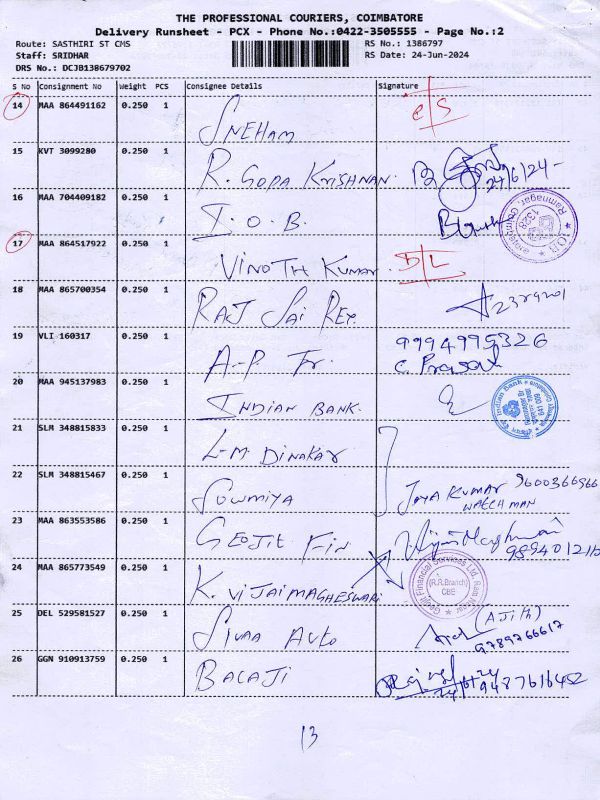 THE PROFESSIONAL COURIERS, COIMBATORE
Delivery Runsheet - PCX - Phone No.:0422-3505555 - Page No.:2
Route: SASTHIRI ST CMS RS No.: 1386797
Staff: SRIDHAR RS Date: 24-Jun-2024
DRS No.: DCJB138679702
S No Consignment No Weight PCS Consignee Details Signature
14 MAA 864491162 0.250 1 SNEHAM
15 KVT 3099280 0.250 1 R. GOPA KRISHNAN. 24/6/24-
16 MAA 704409182 0.250 1 I. O. B.
17 MAA 864517922 0.250 1 VINOTH KUMAR D/L
18 MAA 865700354 0.250 1 RAJ SAI REY.
19 VLI 160317 0.250 1 A-P. Tr. 9994995326
C. Prasath
20 MAA 945137983 0.250 1 INDIAN BANK. Indian Bank
21 SLM 348815833 0.250 1 L-M DINAKAR
22 SLM 348815467 0.250 1 SOWMIYA JAYA KUMAR 9600366966
WATCHMAN
23 MAA 863553586 0.250 1 GEOJIT FIN
24 MAA 865773549 0.250 1 K. VIJAIMAGHESWARI Geojit Financial Services Ltd. (R.R.Branch) CBE
25 DEL 529581527 0.250 1 SIVAA AUTO (AJITH)
9789766617
26 GGN 910913759 0.250 1 BALAJI 9487616452
13